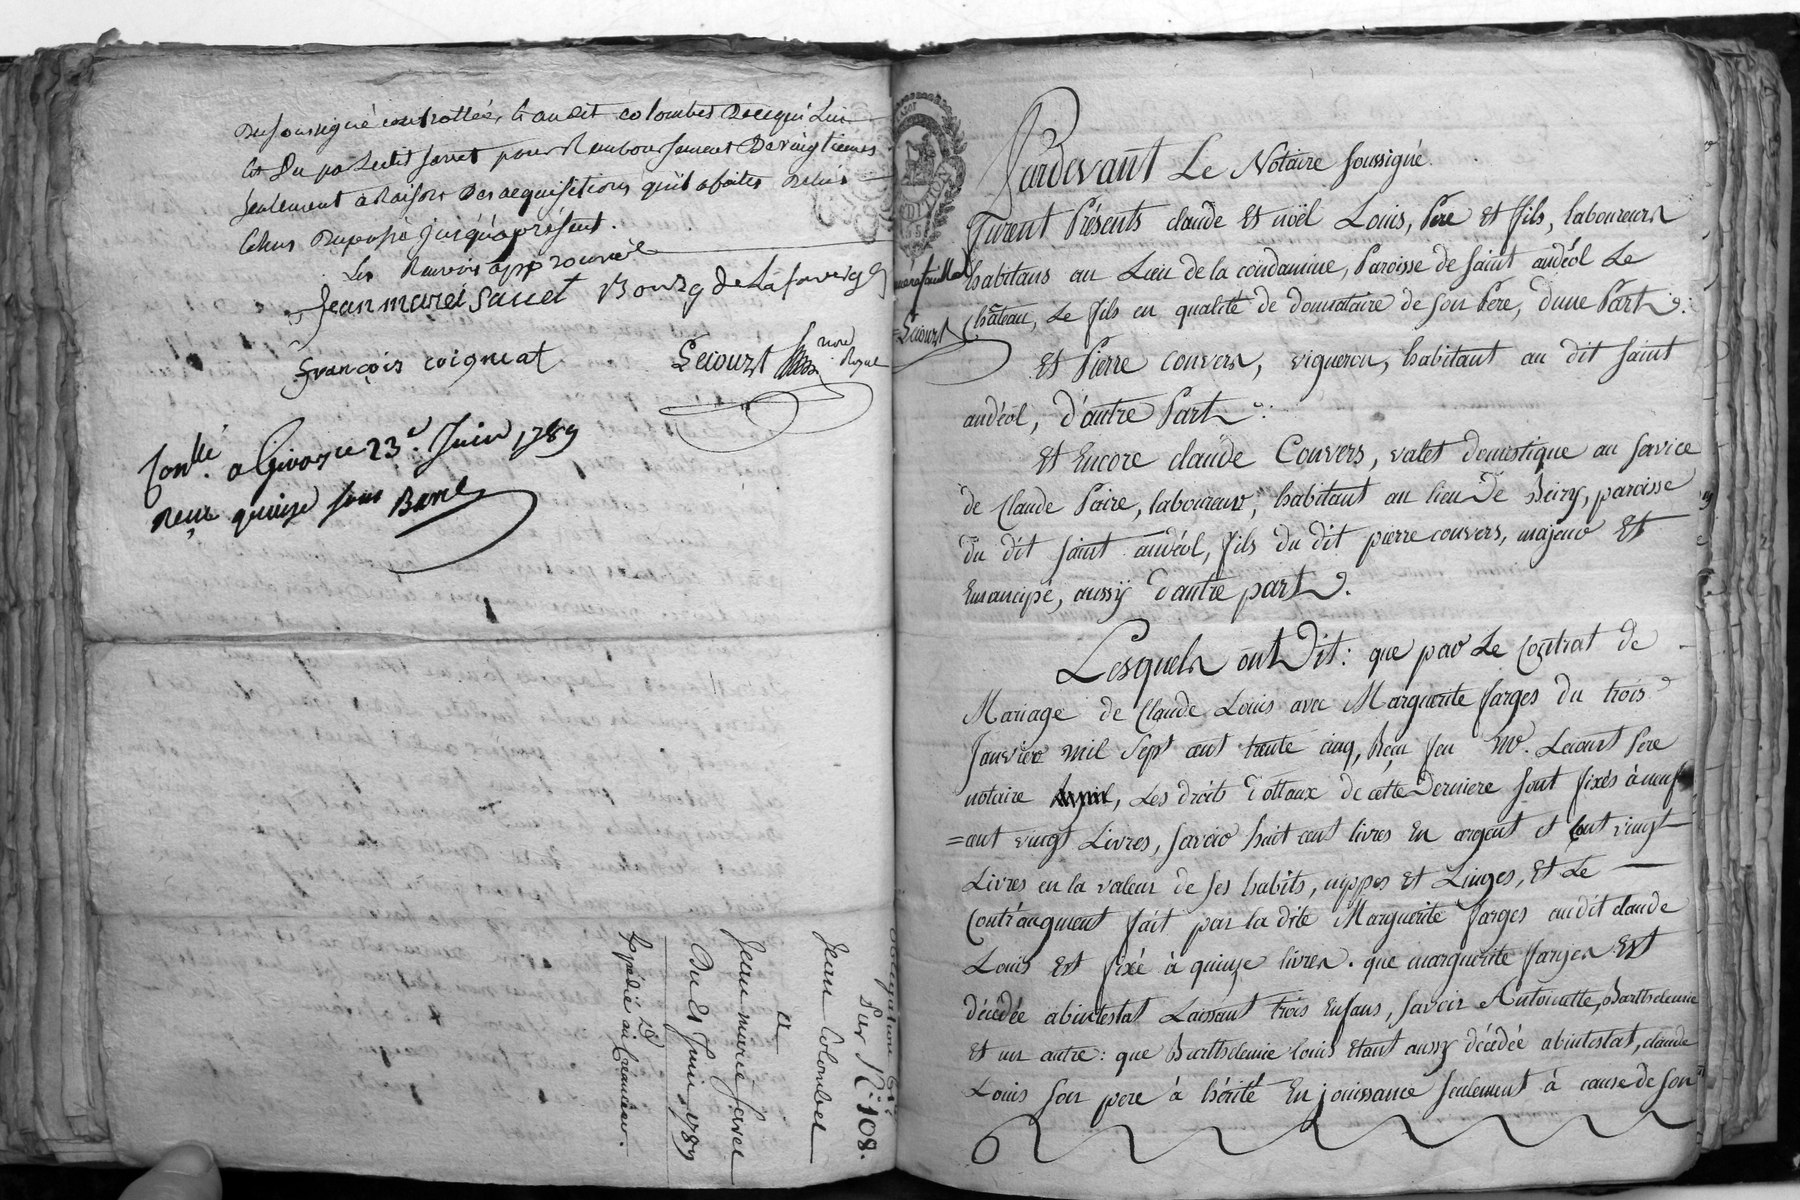 Soussigné controllée, & audit colombet de ce qui lui
est Du par ledit Javet pour Remboursement De vingtiemes
seulement à Raison Des acquisitions qu'il a faites
jusqu'à présent.
Les Renvois approuvé
Jean marei Savet Bourg de La faverge
françois coigneat Lecourt nore Royal
Conllé a Givors ce 23e. Juin 1789
Reçu quinze sous Barel
Par No. 108.
Jean Colombet
a
Jean marie Javet
Du 21 Juin 1789
Expédié au Créancier.
Pardevant Le Notaire soussigné.
Furent Présents claude Et noël Louis, Pere et fils, laboureurs
habitans au Lieu de la condamine, Paroisse de saint andéol Le
château, Le fils en qualité de donnataire de son Pere, d'une Part
Lecourt
Et Pierre convers, vigneron, habitant au dit saint
andéol, d'autre Part
Et Encore claude Convers, valet domestique au service
de Claude Poire, laboureur, habitant au lieu De paroisse
du dit saint andéol, fils du dit pierre convers, majeur Et
Emancipé, aussy d'autre part.
Lesquels ont Dit: que par Le Contrat de
Mariage de Claude Louis avec Marguerite farges du trois
Janvier mil sept cent trente cinq, Reçu feu Me. Lecourt Pere
notaire, Les droits dottaux de cette Derniere sont fixés à neuf
=cent vingt Livres, savoir huit cent livres En argent et cent vingt
Livres en la valeur de ses habits, nippes Et Linges, Et Le
Contr'augment fait par la dite Marguerite farges audit claude
Louis Est fixé à quinze livres. que marguerite farges Est
décédée abintestat Laissant trois Enfans, savoir Antoinette, Barthelemie
Et un autre: que Barthelemie louis Etant aussy décédée abintestat, claude
Louis son pere à hérité En jouissance seulement à cause de son